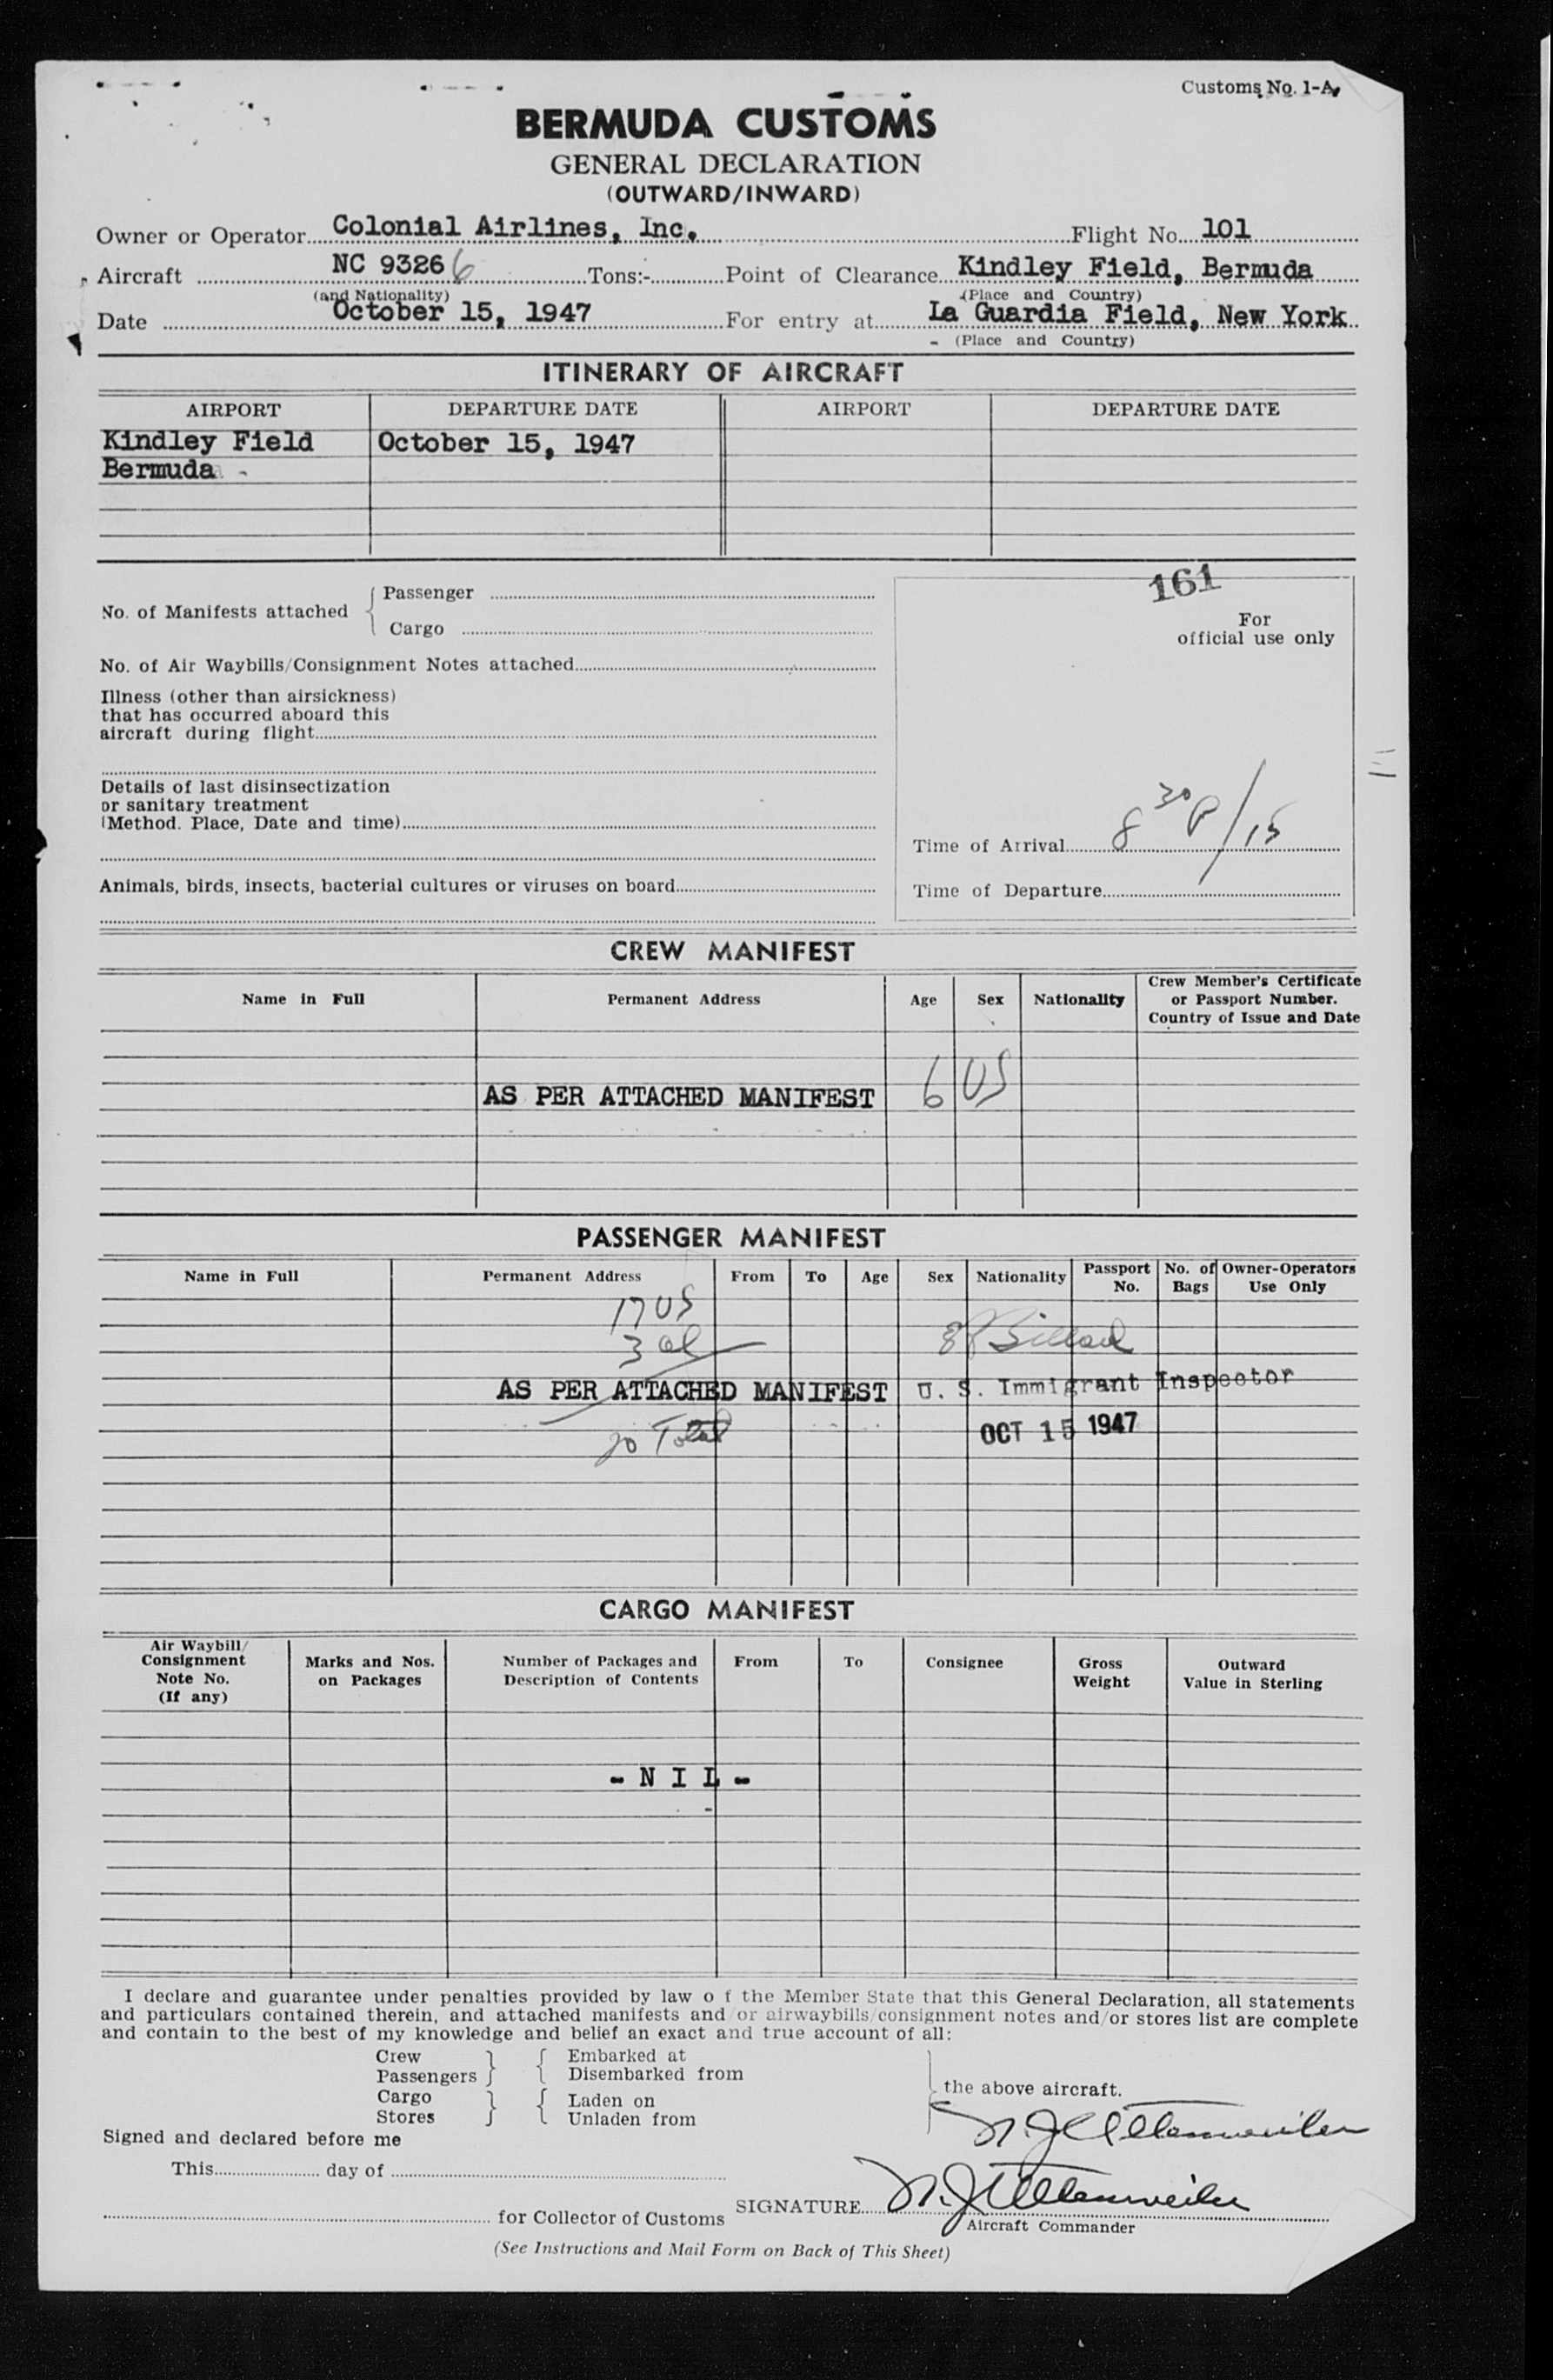 Customs No. 1-A.
BERMUDA CUSTOMS
GENERAL DECLARATION
(OUTWARD/INWARD)
Owner or Operator Colonial Airlines, Inc. Flight No. 101
Aircraft NC 93266 Tons:- Point of Clearance Kindley Field, Bermuda
(and Nationality) (Place and Country)
Date October 15, 1947 For entry at La Guardia Field, New York
(Place and Country)
ITINERARY OF AIRCRAFT
AIRPORT DEPARTURE DATE AIRPORT DEPARTURE DATE
Kindley Field October 15, 1947
Bermuda
161
No. of Manifests attached { Passenger
Cargo
For
official use only
No. of Air Waybills/Consignment Notes attached
Illness (other than airsickness)
that has occurred aboard this
aircraft during flight
Details of last disinsectization
or sanitary treatment
(Method. Place, Date and time)
Time of Arrival 8 30 P/15
Animals, birds, insects, bacterial cultures or viruses on board
Time of Departure
CREW MANIFEST
Name in Full Permanent Address Age Sex Nationality Crew Member's Certificate
or Passport Number.
Country of Issue and Date
AS PER ATTACHED MANIFEST 6 US
PASSENGER MANIFEST
Name in Full Permanent Address From To Age Sex Nationality Passport No. No. of Bags Owner-Operators Use Only
17 US
3 al
AS PER ATTACHED MANIFEST U. S. Immigrant Inspector
20 Total OCT 15 1947
CARGO MANIFEST
Air Waybill/
Consignment
Note No.
(If any)
Marks and Nos.
on Packages
Number of Packages and
Description of Contents
From
To
Consignee
Gross
Weight
Outward
Value in Sterling
- N I L -
I declare and guarantee under penalties provided by law o f the Member State that this General Declaration, all statements
and particulars contained therein, and attached manifests and/or airwaybills/consignment notes and/or stores list are complete
and contain to the best of my knowledge and belief an exact and true account of all:
Crew } { Embarked at
Passengers } { Disembarked from
the above aircraft.
Cargo } { Laden on
Stores } { Unladen from
Signed and declared before me
This day of
SIGNATURE
for Collector of Customs
Aircraft Commander
(See Instructions and Mail Form on Back of This Sheet)